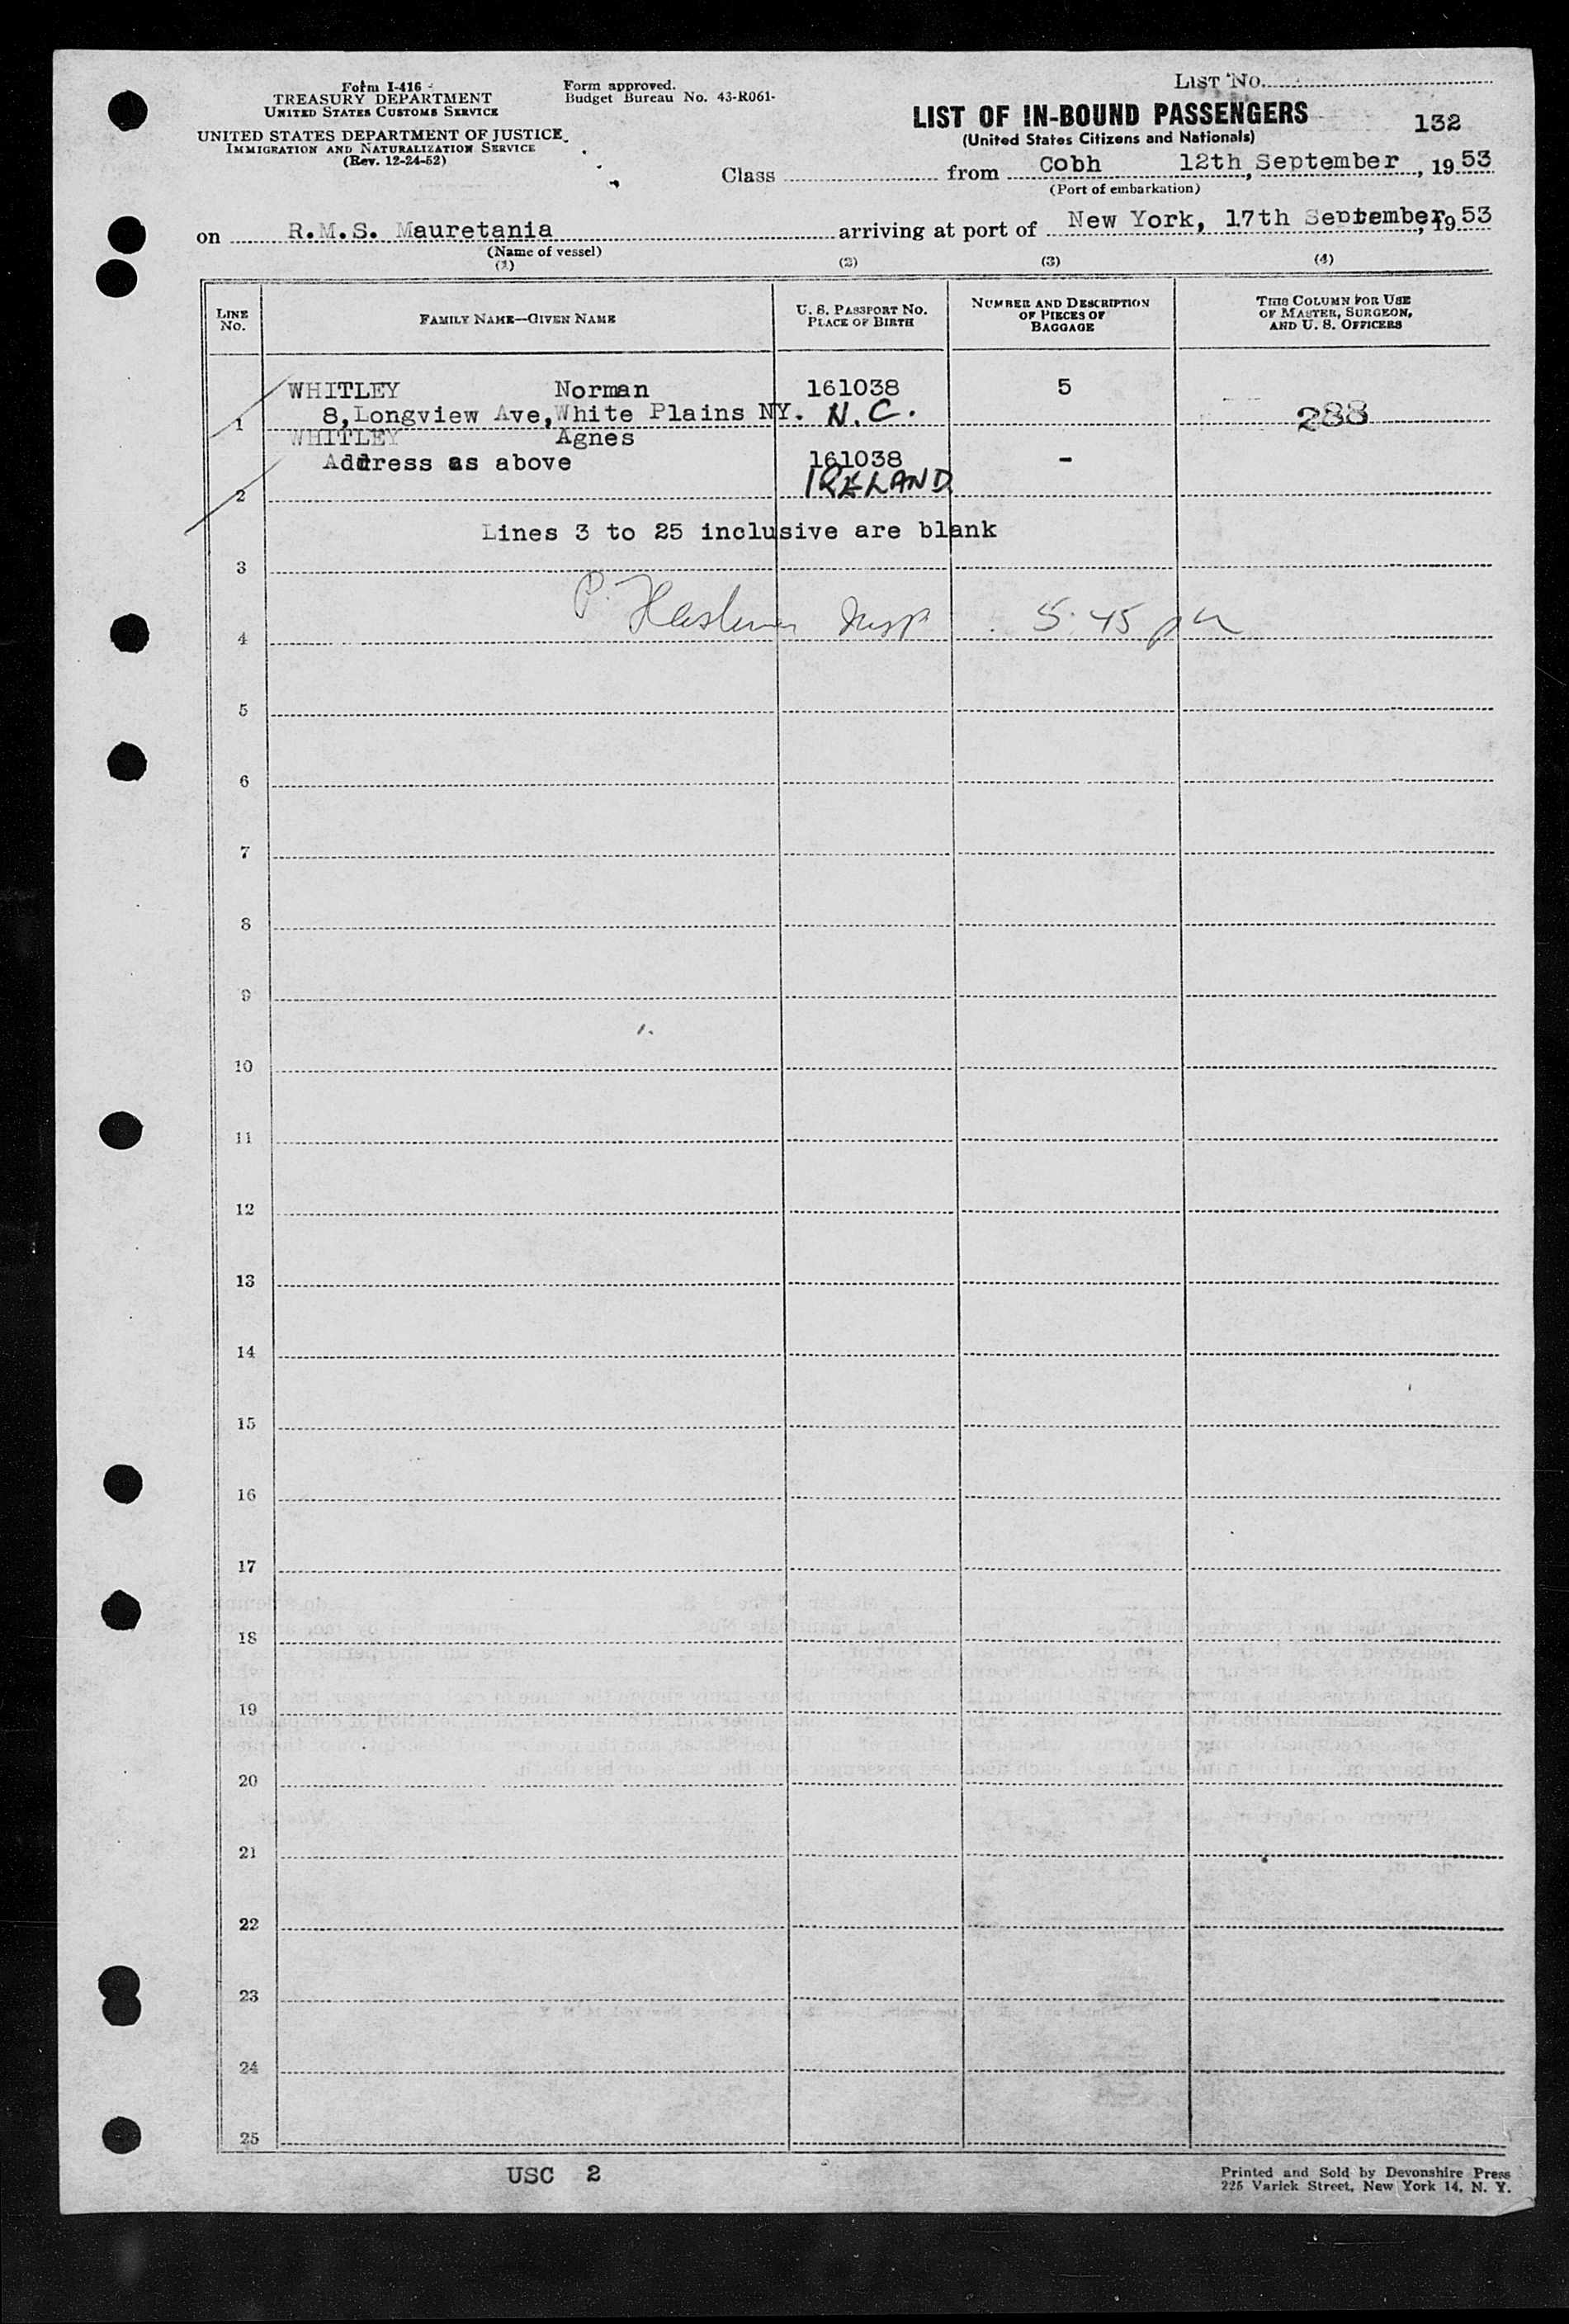 Form I-416
TREASURY DEPARTMENT
UNITED STATES CUSTOMS SERVICE
UNITED STATES DEPARTMENT OF JUSTICE
IMMIGRATION AND NATURALIZATION SERVICE
(Rev. 12-24-52)
Form approved.
Budget Bureau No. 43-R061-
LIST No.
LIST OF IN-BOUND PASSENGERS
(United States Citizens and Nationals)
132
Class from Cobh 12th, September, 1953
(Port of embarkation)
on R.M.S. Mauretania arriving at port of New York, 17th September, 1953
(Name of vessel)
(1) (2) (3) (4)
LINE No.
FAMILY NAME—GIVEN NAME
U. S. PASSPORT NO.
PLACE OF BIRTH
NUMBER AND DESCRIPTION
OF PIECES OF
BAGGAGE
THIS COLUMN FOR USE
OF MASTER, SURGEON,
AND U. S. OFFICERS
WHITLEY Norman 161038 5
1 8,Longview Ave,White Plains NY. N.C. 288
WHITLEY Agnes
Address as above 161038 -
2 IRELAND
Lines 3 to 25 inclusive are blank
3
4 P. Insp 5.45 pm
5
6
7
8
9
10
11
12
13
14
15
16
17
18
19
20
21
22
23
24
25
USC 2
Printed and Sold by Devonshire Press
225 Varick Street, New York 14, N. Y.